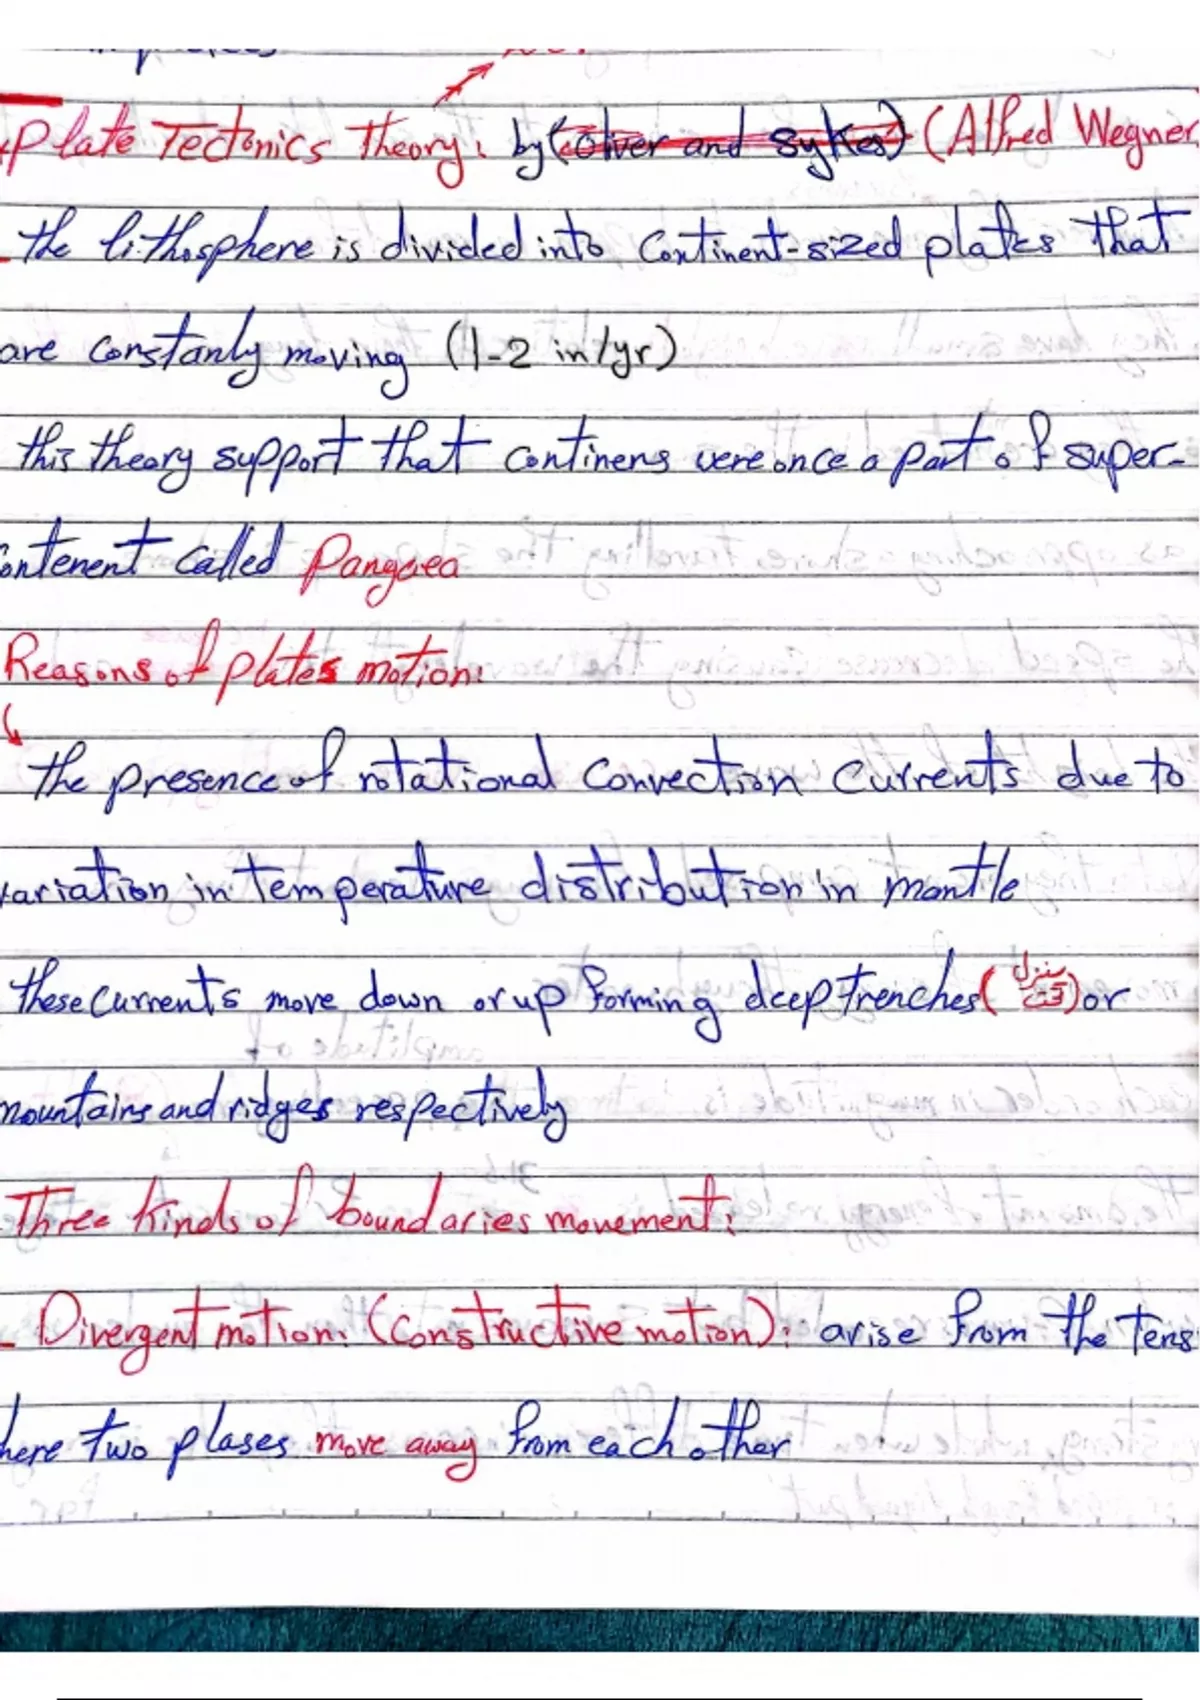 Plate Tectonics theory: by (Oliver and Sykes) (Alfred Wegner
the lithosphere is divided into Continent-sized plates that
are constanly moving (1-2 in/yr)
this theory support that continens were once a part of super-
ontenent called Pangaea
Reasons of plates motion:
the presence of rotational Convection Currents due to
variation in temperature distribution in mantle
these currents move down or up forming deep trenches ( ) or
mountains and ridges respectively
Three kinds of boundaries movement:
Divergent motion: (Constructive motion): arise from the tens
here two plases move away from each other